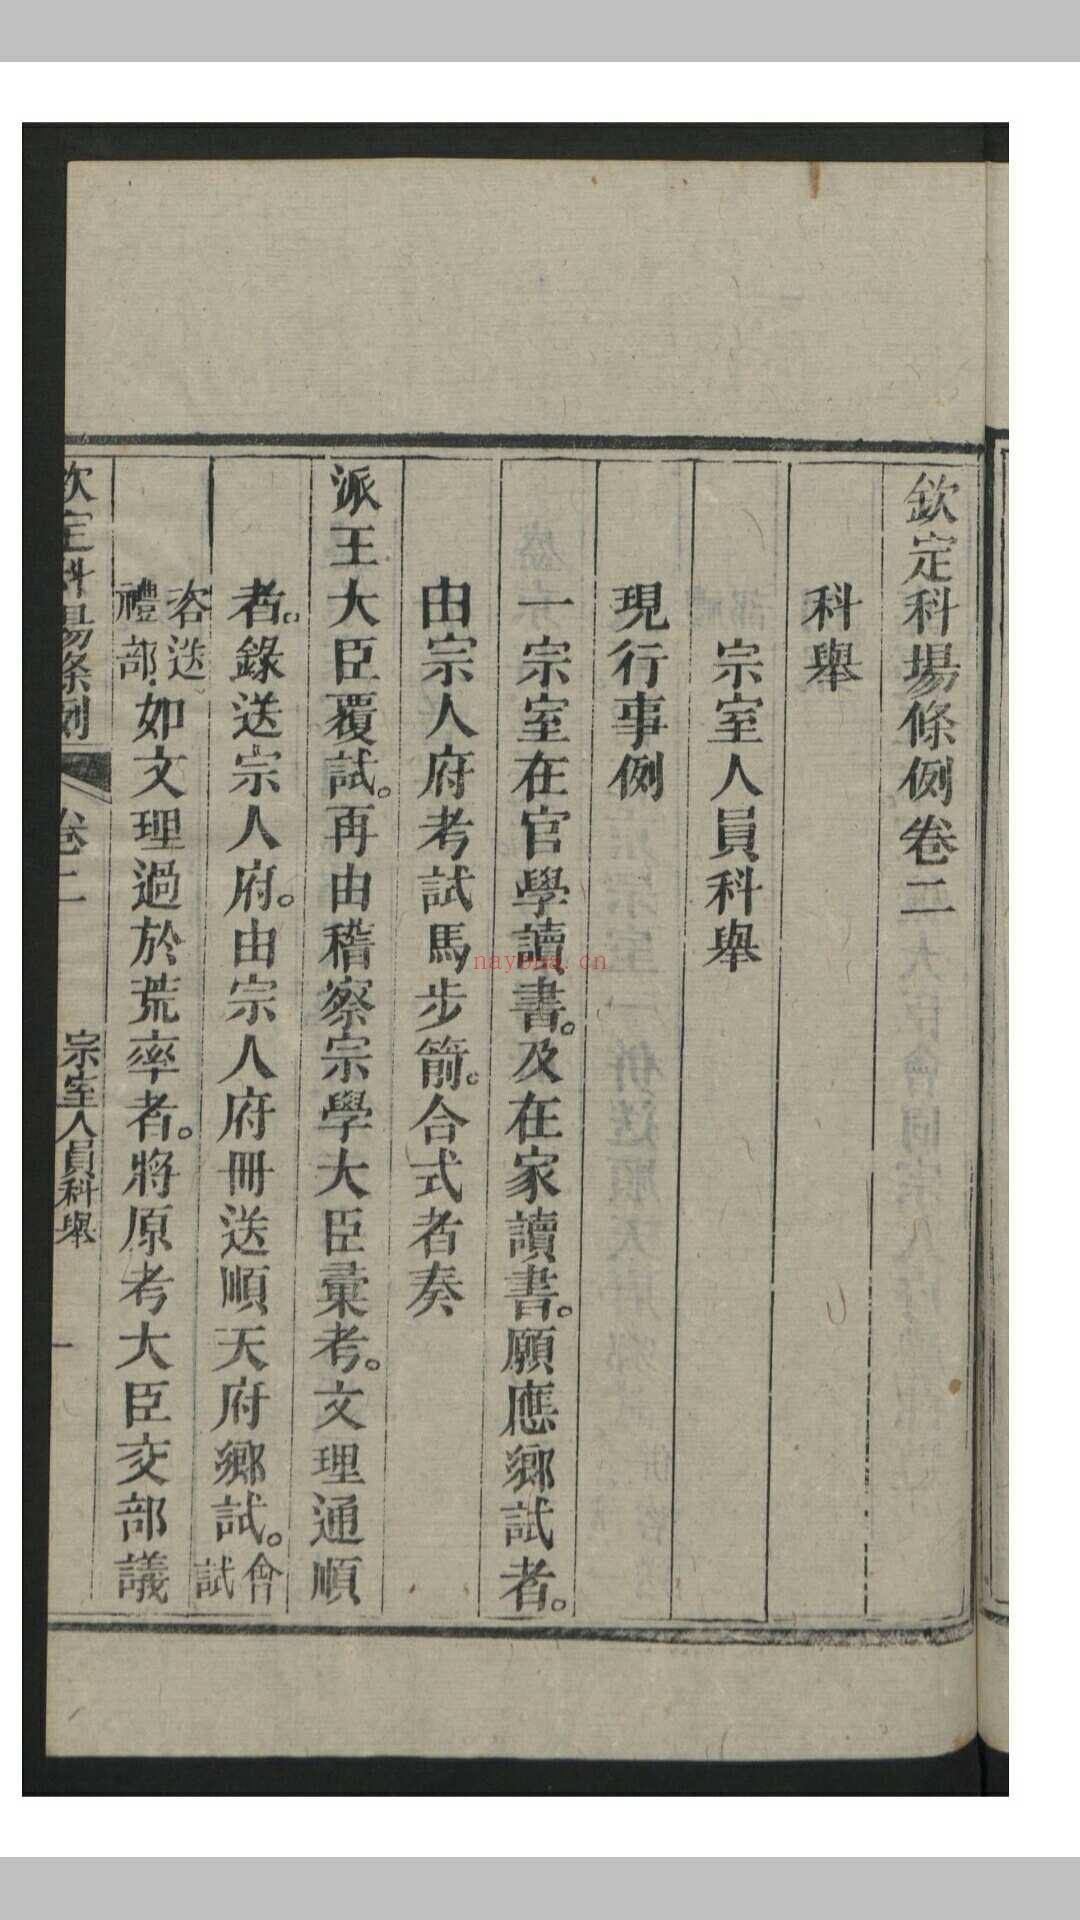 欽定科場條例卷二
科舉
宗室人員科舉
現行事例
一宗室在官學讀書。及在家讀書。願應鄉試者。
由宗人府考試馬步箭。合式者奏
派王大臣覆試。再由稽察宗學大臣彙考。文理通順
者。錄送宗人府。由宗人府冊送順天府鄉試。會試
咨送禮部。如文理過於荒率者。將原考大臣交部議
欽定科場條例 卷二 宗室人員科舉 一
nayona.cn